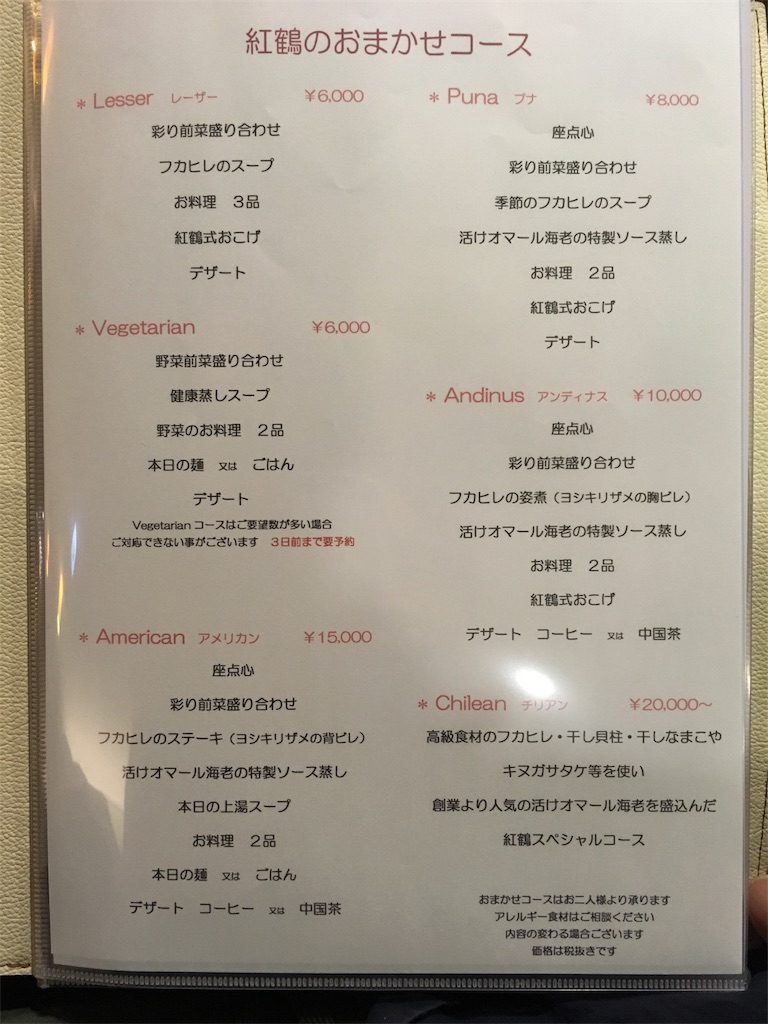 紅鶴のおまかせコース
* Lesser レーザー ¥6,000
彩り前菜盛り合わせ
フカヒレのスープ
お料理 3品
紅鶴式おこげ
デザート
* Vegetarian ¥6,000
野菜前菜盛り合わせ
健康蒸しスープ
野菜のお料理 2品
本日の麺 又は ごはん
デザート
Vegetarianコースはご要望数が多い場合
ご対応できない事がございます 3日前まで要予約
* American アメリカン ¥15,000
座点心
彩り前菜盛り合わせ
フカヒレのステーキ（ヨシキリザメの背ビレ）
活けオマール海老の特製ソース蒸し
本日の上湯スープ
お料理 2品
本日の麺 又は ごはん
デザート コーヒー 又は 中国茶
* Puna プナ ¥8,000
座点心
彩り前菜盛り合わせ
季節のフカヒレのスープ
活けオマール海老の特製ソース蒸し
お料理 2品
紅鶴式おこげ
デザート
* Andinus アンディナス ¥10,000
座点心
彩り前菜盛り合わせ
フカヒレの姿煮（ヨシキリザメの胸ビレ）
活けオマール海老の特製ソース蒸し
お料理 2品
紅鶴式おこげ
デザート コーヒー 又は 中国茶
* Chilean チリアン ¥20,000〜
高級食材のフカヒレ・干し貝柱・干しなまこや
キヌガサタケ等を使い
創業より人気の活けオマール海老を盛込んだ
紅鶴スペシャルコース
おまかせコースはお二人様より承ります
アレルギー食材はご相談ください
内容の変わる場合ございます
価格は税抜きです